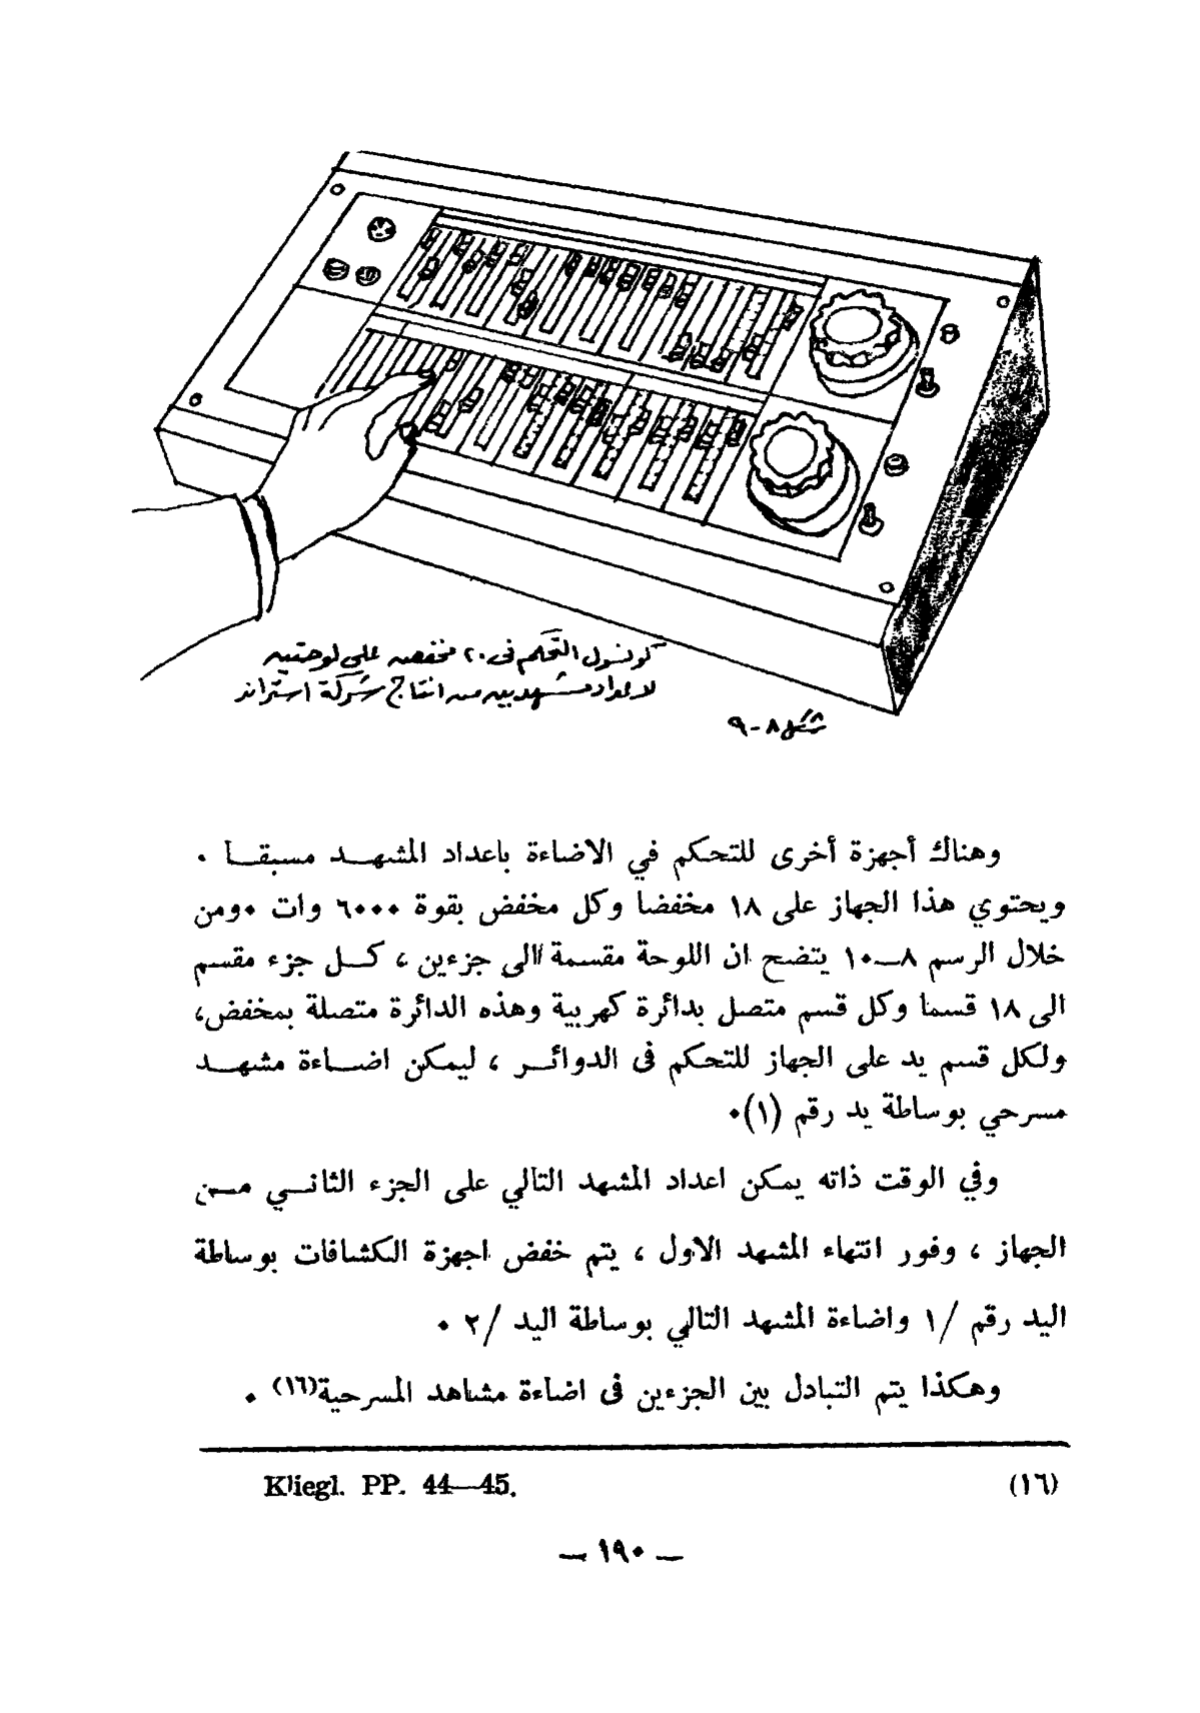 كونسول التحكم فى ٢٠ مخفض على لوحتين
لاعداد مشهدين من انتاج شركة استراند
شكل ٨-٩
وهناك أجهزة أخرى للتحكم في الاضاءة باعداد المشهد مسبقا ٠
ويحتوي هذا الجهاز على ١٨ مخفضا وكل مخفض بقوة ٦٠٠٠ وات ٠ومن
خلال الرسم ٨—١٠ يتضح ان اللوحة مقسمة الى جزءين ، كل جزء مقسم
الى ١٨ قسما وكل قسم متصل بدائرة كهربية وهذه الدائرة متصلة بمخفض،
ولكل قسم يد على الجهاز للتحكم فى الدوائر ، ليمكن اضاءة مشهد
مسرحي بوساطة يد رقم (١)٠
وفي الوقت ذاته يمكن اعداد المشهد التالي على الجزء الثاني من
الجهاز ، وفور انتهاء المشهد الاول ، يتم خفض اجهزة الكشافات بوساطة
اليد رقم /١ واضاءة المشهد التالي بوساطة اليد /٢ ٠
وهكذا يتم التبادل بين الجزءين فى اضاءة مشاهد المسرحية(١٦) ٠
(١٦) Kliegl. PP. 44—45.
— ١٩٠ —